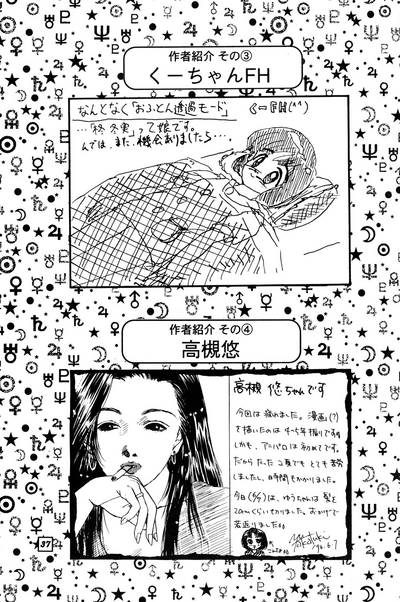 作者紹介 その③
くーちゃんFH
なんとなく「おふとん透過モード」
くーFH(^^)
…「柊 冬実」って娘です。
んでは、また、機会ありましたら…
作者紹介 その④
高槻悠
高槻 悠ちゃんです
今回は疲れました。漫画(?)
を描いたのは4~5年振りです
しかも、アニパロは初めてです。
だからたった2頁でもとても苦労
しましたし、8時間もかかりました。
今日(6/6)は、ゆうちゃんは髪を
20cmくらい切りました。おかげで
若返りました。
37